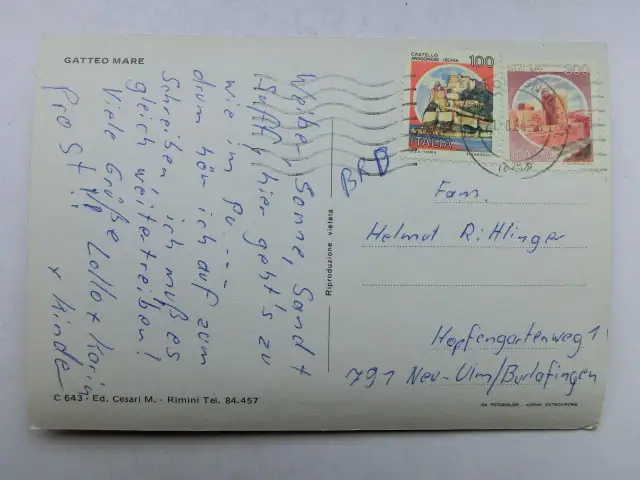 GATTEO MARE
Weiber, Sonne, Sand +
Suff, hier geht's zu
wie im Pu----
drum hör ich auf zum
Schreiben, ich muß es
gleich weitertreiben!
Viele Grüße Lollo + Karin
Prost!! + Kinder
C 643 - Ed. Cesari M. - Rimini Tel. 84.457
Riproduzione vietata
CASTELLO
ARAGONESE - ISCHIA
100
ITALIA
300
ITALIA
BRD
Fam.
Helmut Rittlinger
Hopfengartenweg 1
791 Neu-Ulm/Burlafingen
KODAK EKTACHROME